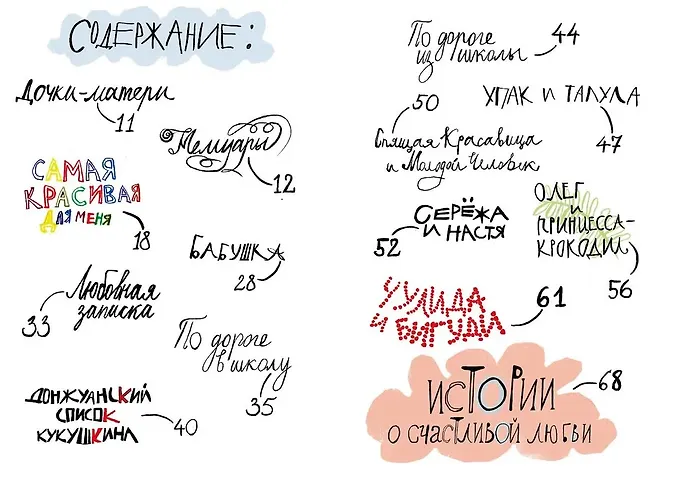 СОДЕРЖАНИЕ:
Дочки-матери
11
Мемуары
12
САМАЯ
КРАСИВАЯ
ДЛЯ МЕНЯ
18
БАБУШКА
28
Любовная
записка
33
По дороге
в школу
35
ДОНЖУАНСКИЙ
СПИСОК
КУКУШКИНА
40
По дороге
из школы
44
УПАК И ТАЛУЛА
47
50
Спящая Красавица
и Молодой Человек
СЕРЁЖА
И НАСТЯ
52
ОЛЕГ
И
ПРИНЦЕССА-
КРОКОДИЛ
56
УУЛИДА
И БИГУДИ
61
ИСТОРИИ
О СЧАСТЛИВОЙ ЛЮБВИ
68